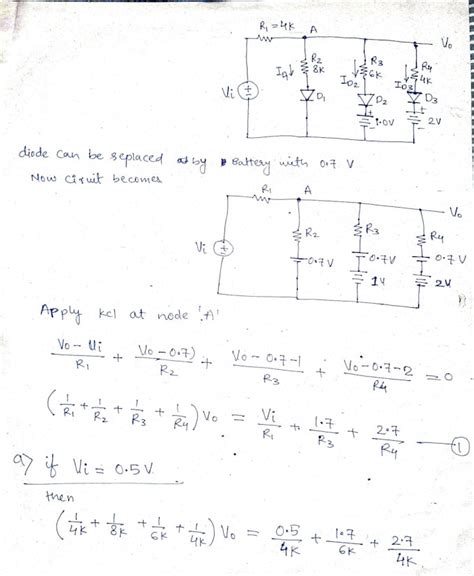 R1 = 4K
A
Vo
R2
8K
R3
6K
R4
4K
ID2
ID3
Vi
D1
D2
D3
1.0V
2V
diode can be replaced by Battery with 0.7 V
Now circuit becomes
R1
A
Vo
R2
R3
R4
Vi
0.7V
0.7V
0.7V
1V
2V
Apply kcl at node 'A'
Vo - Vi / R1 + Vo - 0.7) / R2 + Vo - 0.7 - 1 / R3 + Vo - 0.7 - 2 / R4 = 0
(1/R1 + 1/R2 + 1/R3 + 1/R4) Vo = Vi/R1 + 1.7/R3 + 2.7/R4 — ①
a) if Vi = 0.5V
then
(1/4K + 1/8K + 1/6K + 1/4K) Vo = 0.5/4K + 1.7/6K + 2.7/4K